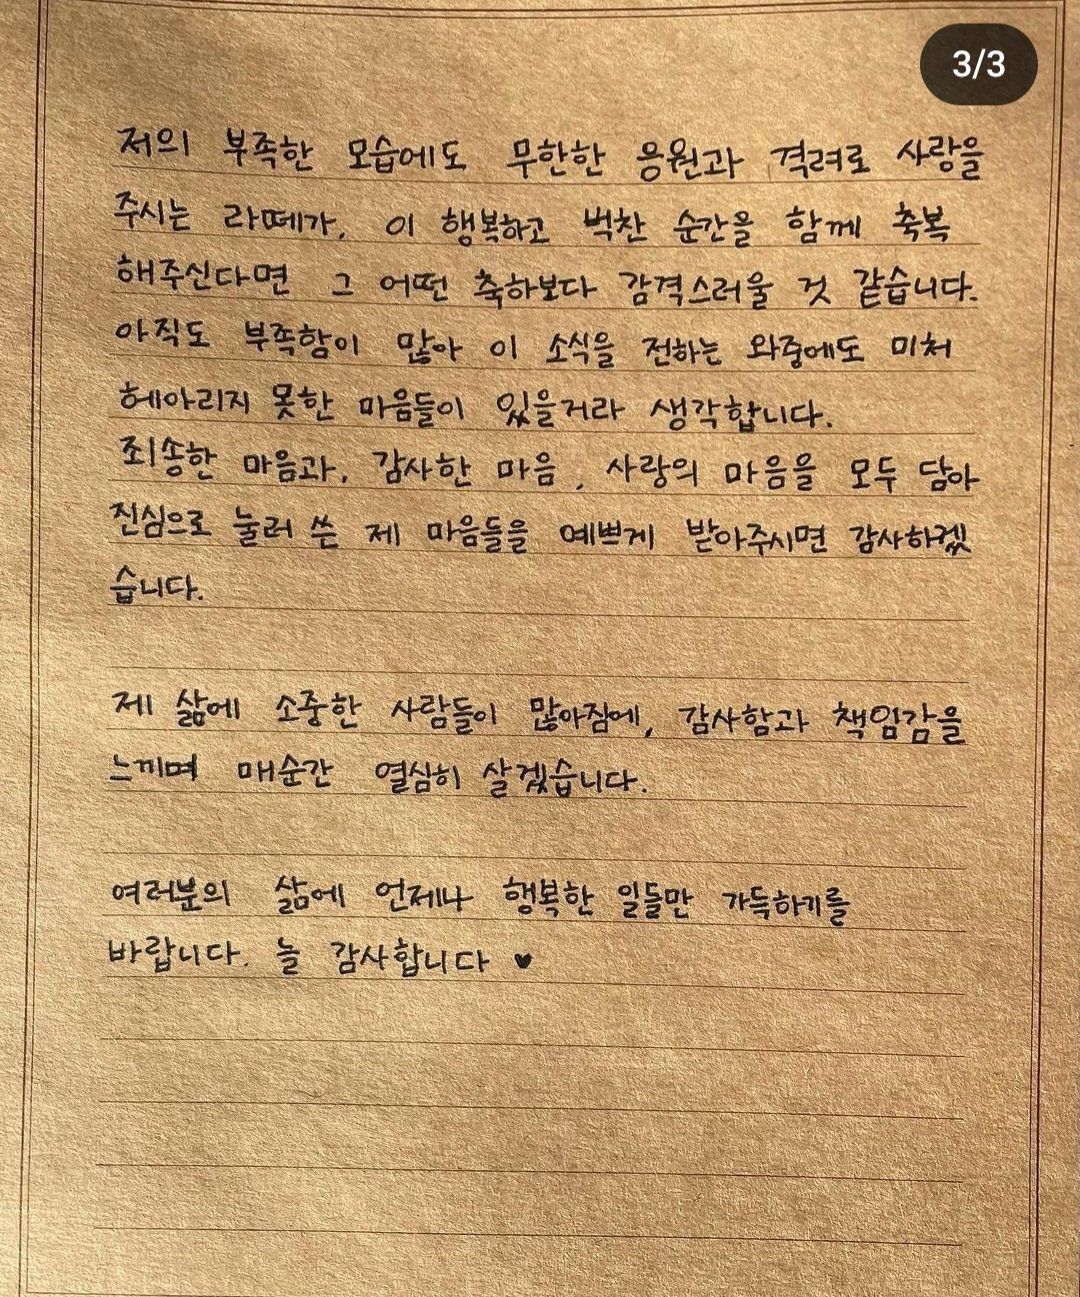 3/3
저의 부족한 모습에도 무한한 응원과 격려로 사랑을
주시는 라떼가, 이 행복하고 벅찬 순간을 함께 축복
해주신다면 그 어떤 축하보다 감격스러울 것 같습니다.
아직도 부족함이 많아 이 소식을 전하는 와중에도 미처
헤아리지 못한 마음들이 있을거라 생각합니다.
죄송한 마음과, 감사한 마음, 사랑의 마음을 모두 담아
진심으로 눌러 쓴 제 마음들을 예쁘게 받아주시면 감사하겠
습니다.
제 삶에 소중한 사람들이 많아짐에, 감사함과 책임감을
느끼며 매순간 열심히 살겠습니다.
여러분의 삶에 언제나 행복한 일들만 가득하기를
바랍니다. 늘 감사합니다 ♥